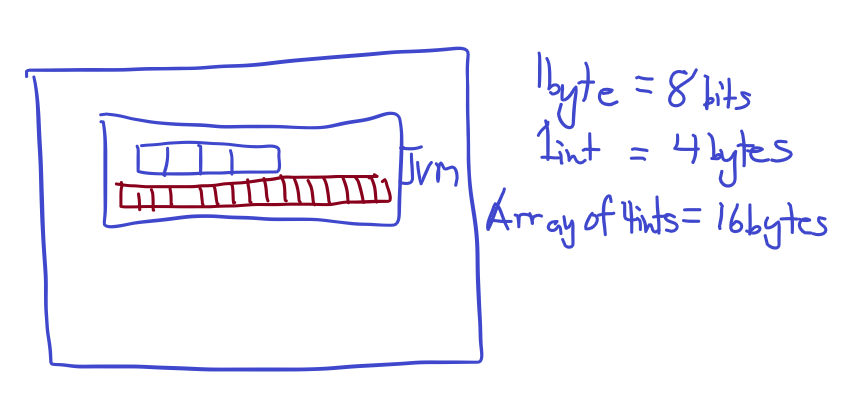 1byte = 8bits
1int = 4bytes
Jvm
Array of 4ints = 16bytes